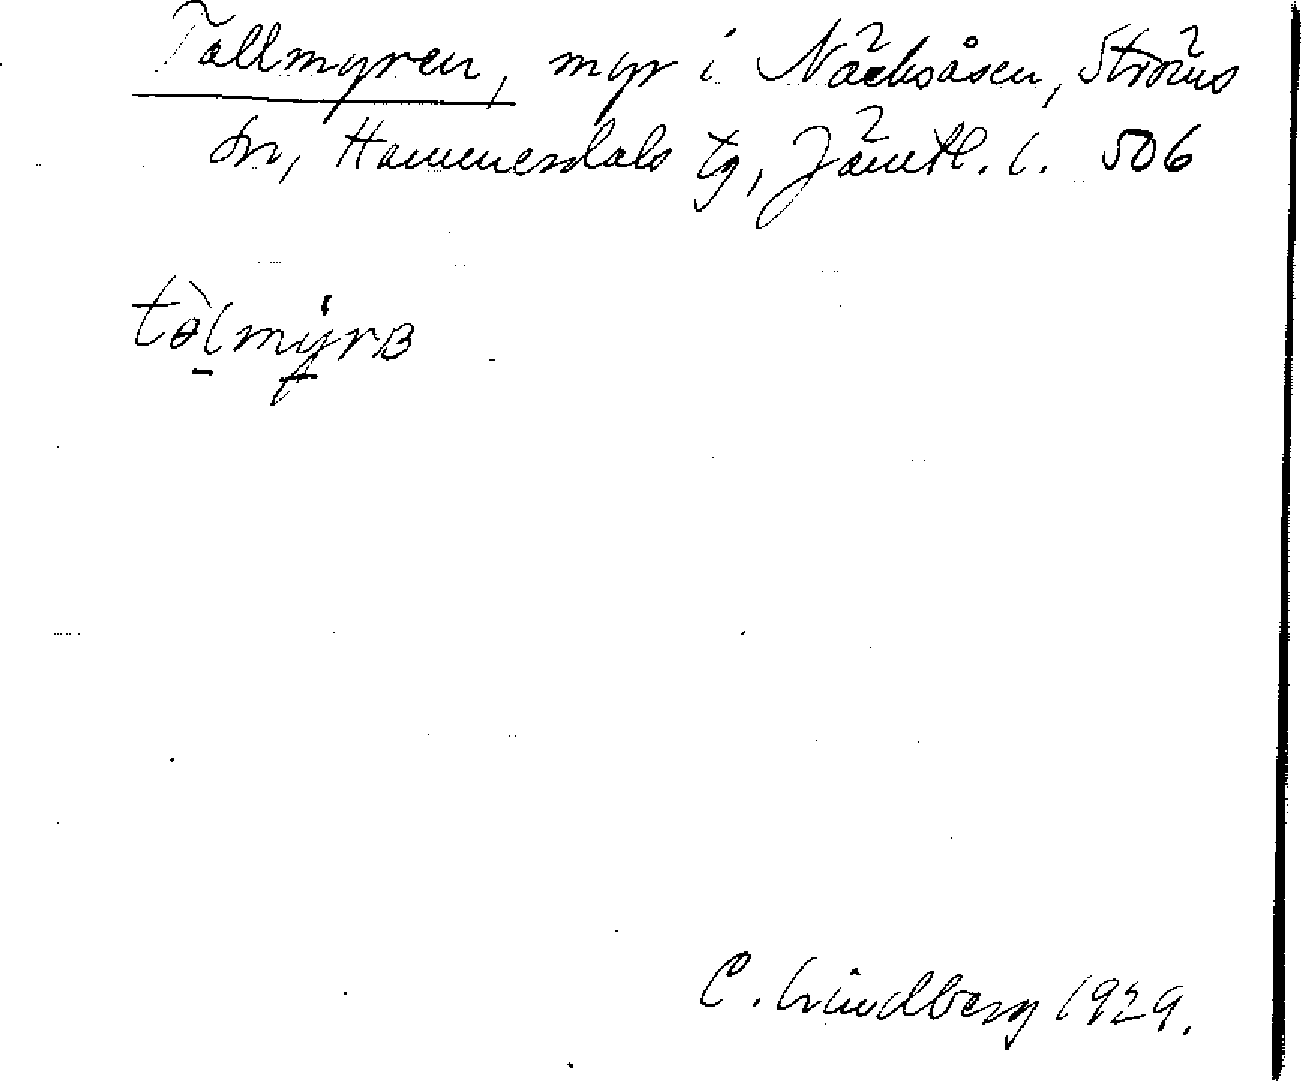 Tallmyren, myr i Näcksåsen, Ströms
sn, Hammerdals tg, Jämtl. l. 506
C. Lindberg 1929.